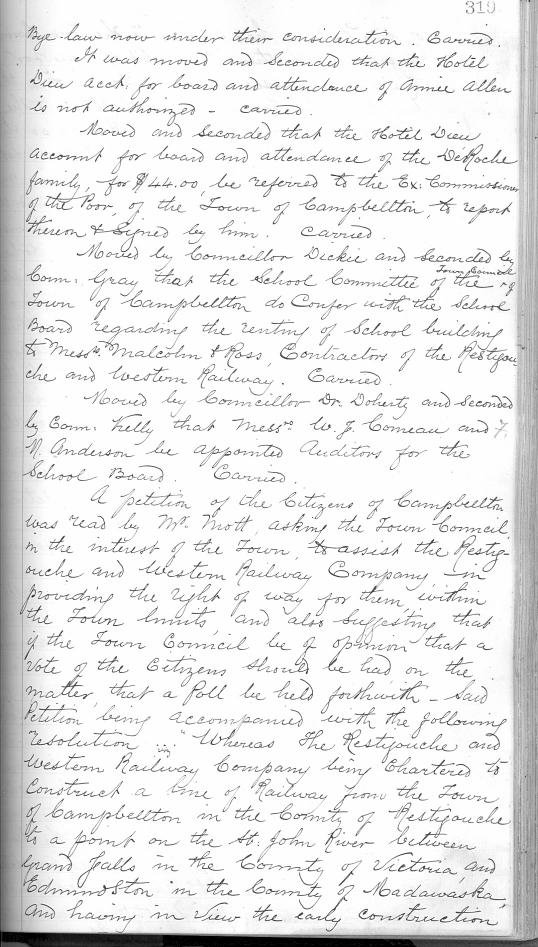 319
Bye-law now under their consideration. Carried.
It was moved and seconded that the Hotel
Dieu acct. for board and attendance of Annie Allen
is not authorized - carried.
Moved and seconded that the Hotel Dieu
account for board and attendance of the DeRoche
family, for $44.00, be referred to the Ex: Commissioner
of the Poor, of the Town of Campbellton, to report
thereon & signed by him. Carried.
Moved by Councillor Dickie and seconded by
Town Council
Coun: Gray that the School Committee of the of
Town of Campbellton do Confer with the School
Board regarding the renting of School building
to Messrs. Malcolm & Ross, Contractors of the Restigou-
che and Western Railway. Carried.
Moved by Councillor Dr. Doherty and seconded
by Coun: Kelly that Messrs W. J. Comeau and F.
M. Anderson be appointed Auditors for the
School Board. Carried.
A petition of the Citizens of Campbellton
was read by Mr. Mott, asking the Town Council,
in the interest of the Town, to assist the Restig-
ouche and Western Railway Company in
providing the right of way for them within
the Town limits, and also suggesting that
if the Town Council be of opinion that a
vote of the Citizens should be had on the
matter, that a Poll be held forthwith - Said
Petition being accompanied with the following
resolution viz: "Whereas The Restigouche and
Western Railway Company being Chartered to
Construct a line of Railway from the Town
of Campbellton in the County of Restigouche
to a point on the St. John River between
Grand Falls in the County of Victoria, and
Edmundston in the County of Madawaska,
and having in view the early construction